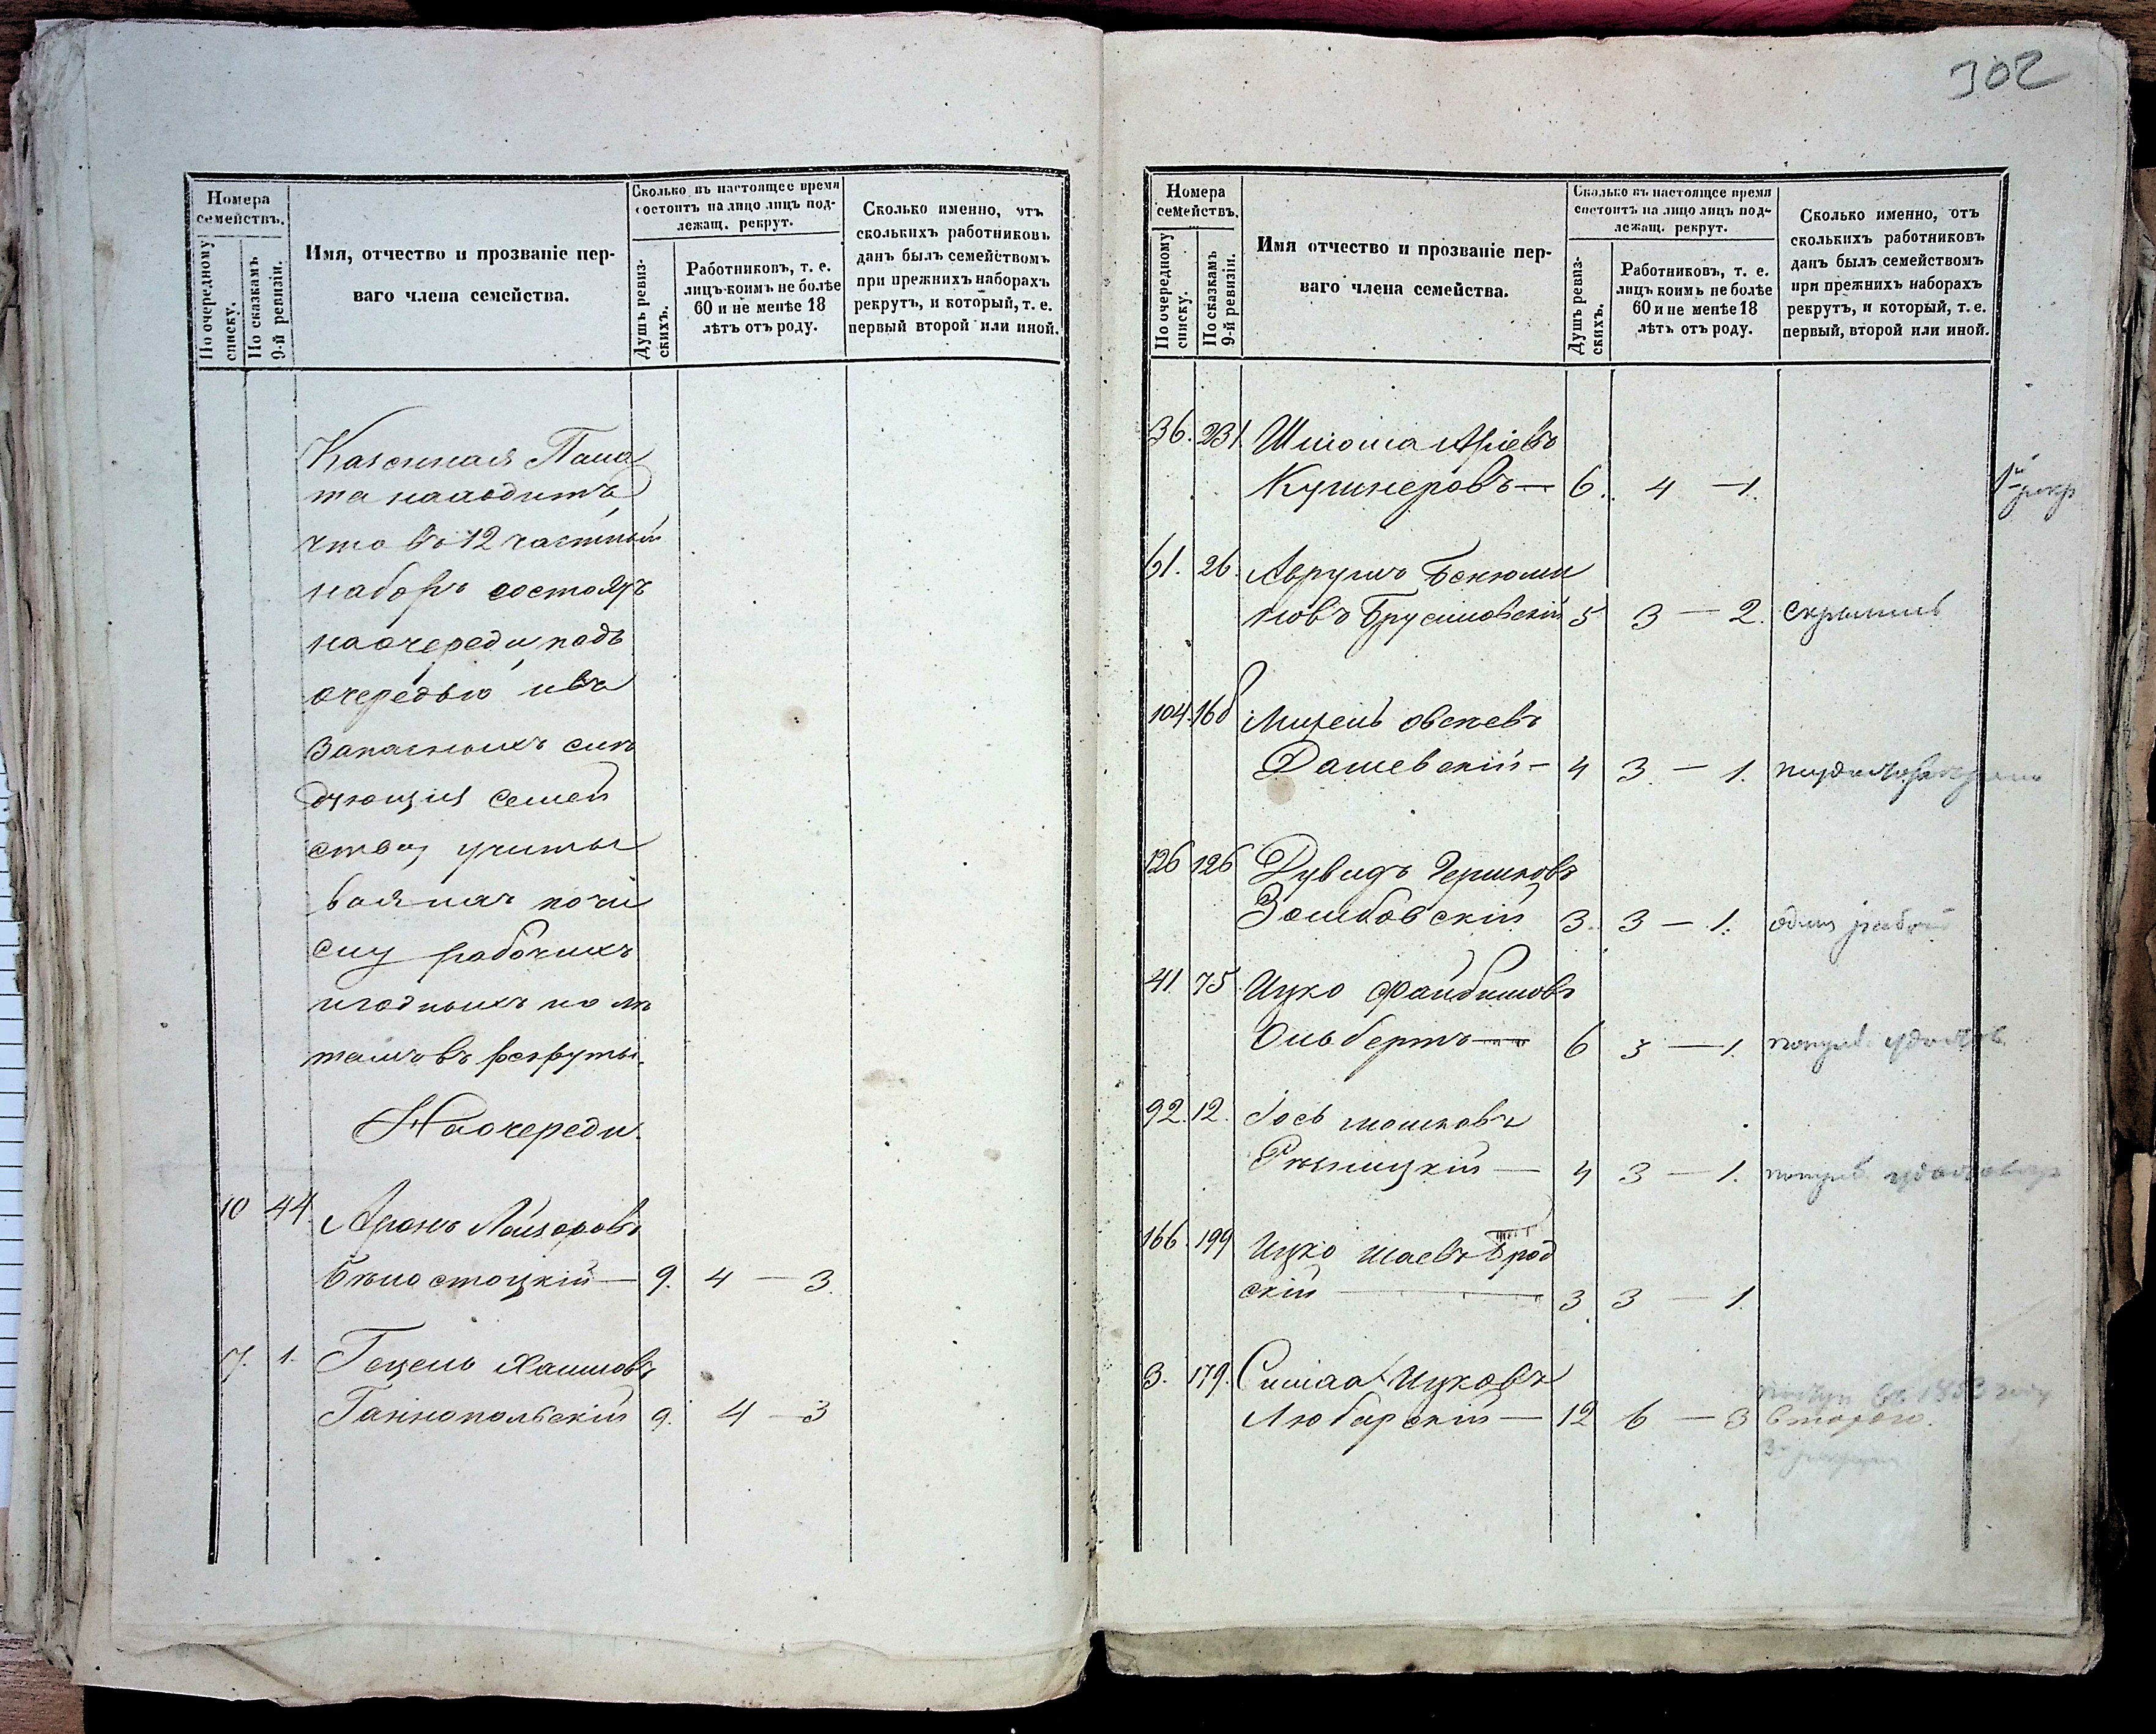 302
Номера
семействъ.
По очередному
списку.
По сказкамъ
9-й ревизіи.
Имя, отчество и прозваніе пер-
ваго члена семейства.
Сколько въ настоящее время
состоитъ на лицо лицъ под-
лежащ. рекрут.
Душъ ревиз-
скихъ.
Работниковъ, т. е.
лицъ коимъ не болѣе
60 и не менѣе 18
лѣтъ отъ роду.
Сколько именно, отъ
сколькихъ работниковъ
данъ былъ семействомъ
при прежнихъ наборахъ
рекрутъ, и который, т. е.
первый второй или иной.
Казенная Пала
та находитъ,
что въ 12 частный
наборъ состоятъ
на очереди, подъ
очередью и въ
запасныхъ слѣ
дующія семей
ства, учиты
вая ихъ по чи
слу рабочихъ
и годныхъ по лѣ
тамъ въ рекруты.
На очереди.
10 44 Аронъ Лейзеровъ
Бѣлостоцкій — 9. 4 — 3.
17. 1. Гецель Хаимовъ
Гайнопольскій 9. 4 — 3
Номера
семействъ.
По очередному
списку.
По сказкамъ
9-й ревизіи.
Имя отчество и прозваніе пер-
ваго члена семейства.
Сколько въ настоящее время
состоитъ на лицо лицъ под-
лежащ. рекрут.
Душъ ревиз-
скихъ.
Работниковъ, т. е.
лицъ коимъ не болѣе
60 и не менѣе 18
лѣтъ отъ роду.
Сколько именно, отъ
сколькихъ работниковъ
данъ былъ семействомъ
при прежнихъ наборахъ
рекрутъ, и который, т. е.
первый, второй или иной.
36. 231 Шлома Аріевъ
Кушнеровъ — 6. 4 — 1.
61. 26. Аврумъ Бенюми
новъ Брусиловскій 5 3 — 2. скрылись
104. 168 Овсеевъ
Дашевскій — 4 3 — 1.
126 126 Дувидъ Гершковъ
Зомбовскій 3. 3 — 1. одинъ
41. 75. Ицко Файбишовъ
Ольбертъ — 6 3 — 1.
92. 12. Іось Мошковъ
Рѣзницкій — 4 3 — 1.
166. 199 Ицко Шаевъ Брод
скій — 3 3 — 1.
3. 179. Симха Ицковъ
Любарскій — 12 6 — 3 втораго.